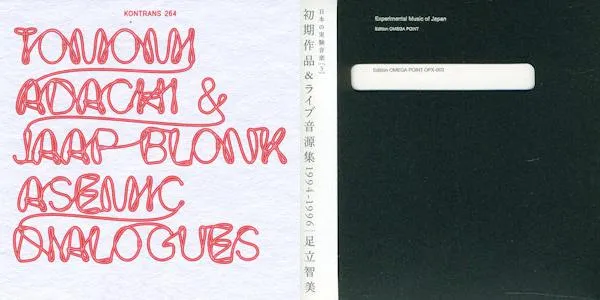 KONTRANS 264
TOMOMI
ADACHI &
JAAP BLONK
ASEMIC
DIALOGUES
日本の実験音楽[2]
初期作品&ライブ音源集 1994-1996 | 足立智美
Experimental Music of Japan
Edition OMEGA POINT
Edition OMEGA POINT OPX-003